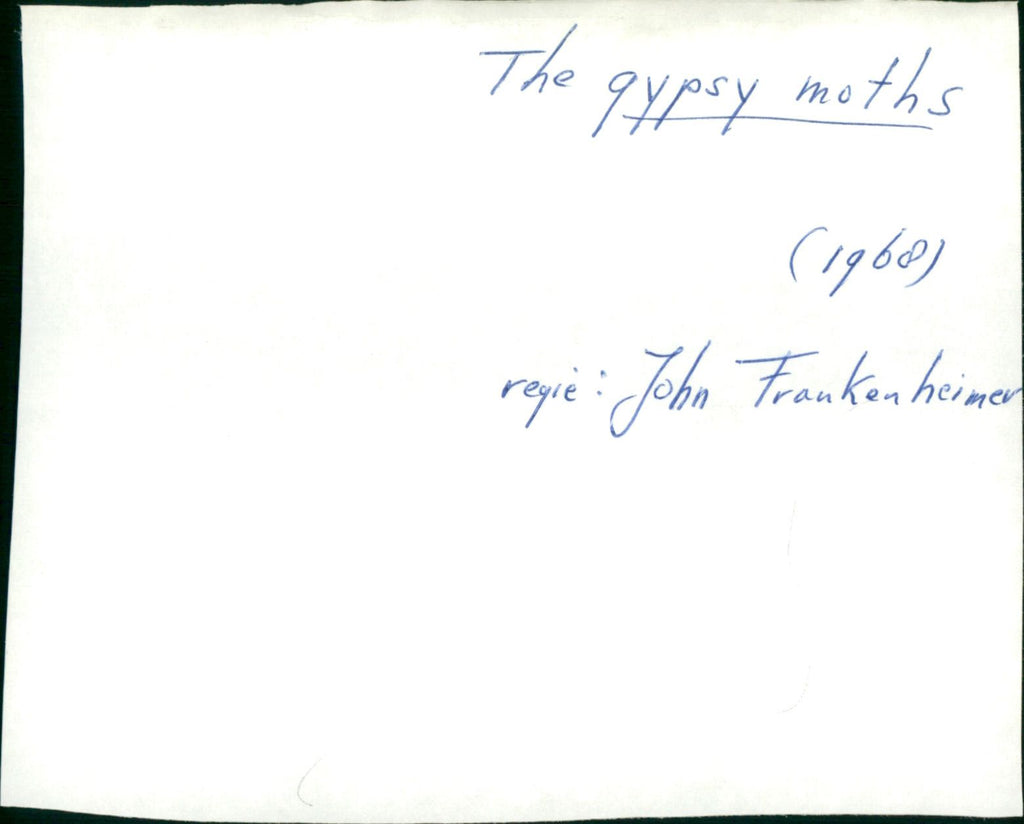 The gypsy moths
(1968)
regie: John Frankenheimer